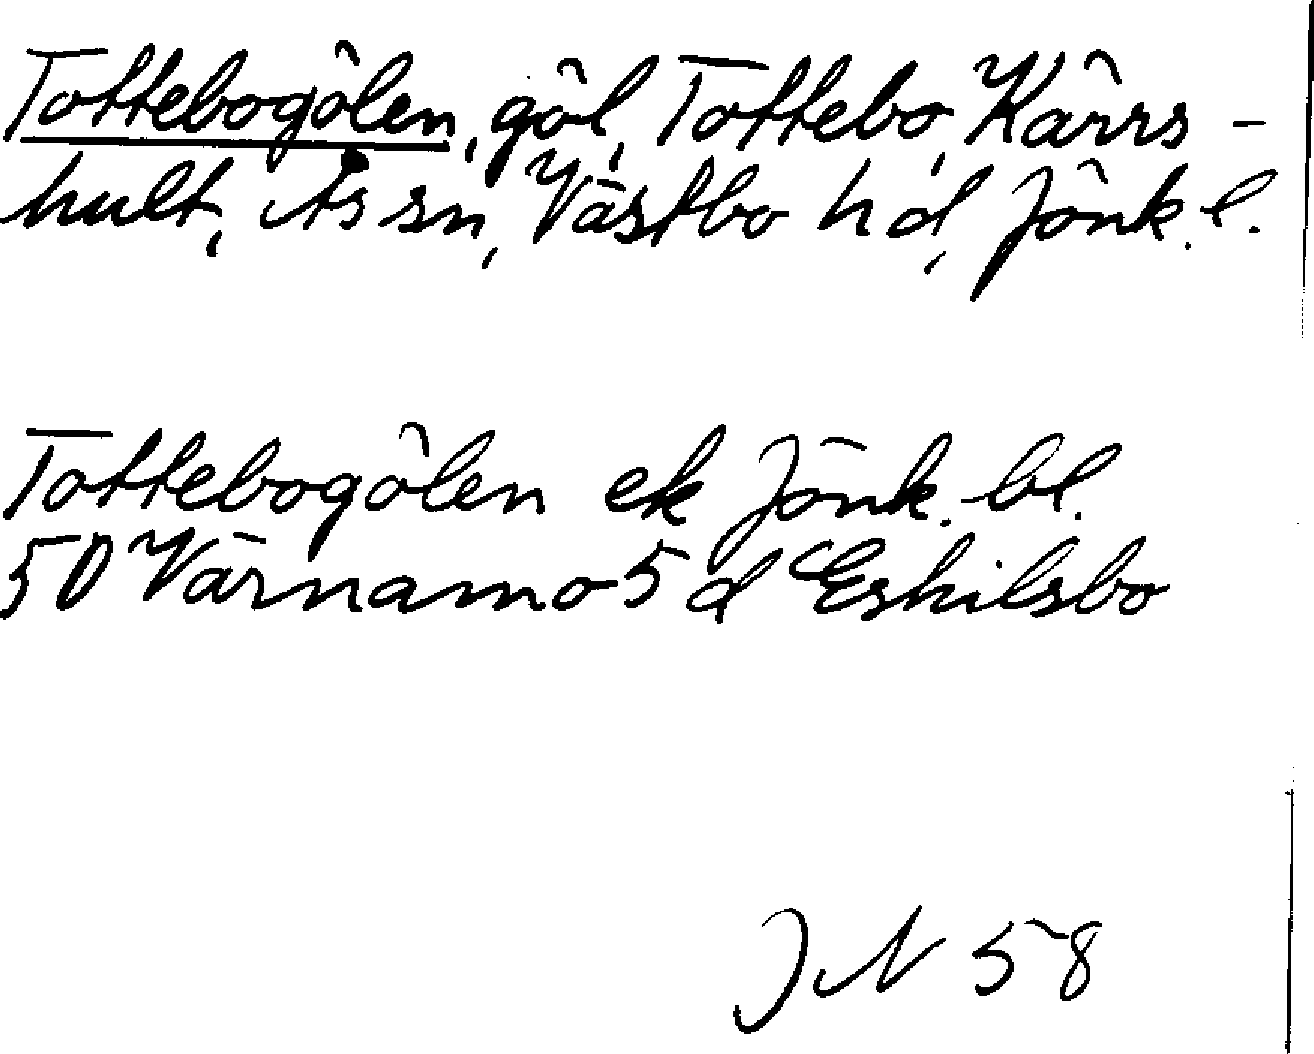 Tottebogölen, göl, Tottebo, Kärrs-
hult, Ås sn, Västbo hd, Jönk. l.
Tottebogölen ek Jönk. bl.
50 Värnamo 5 d Eskilsbo
JN 58